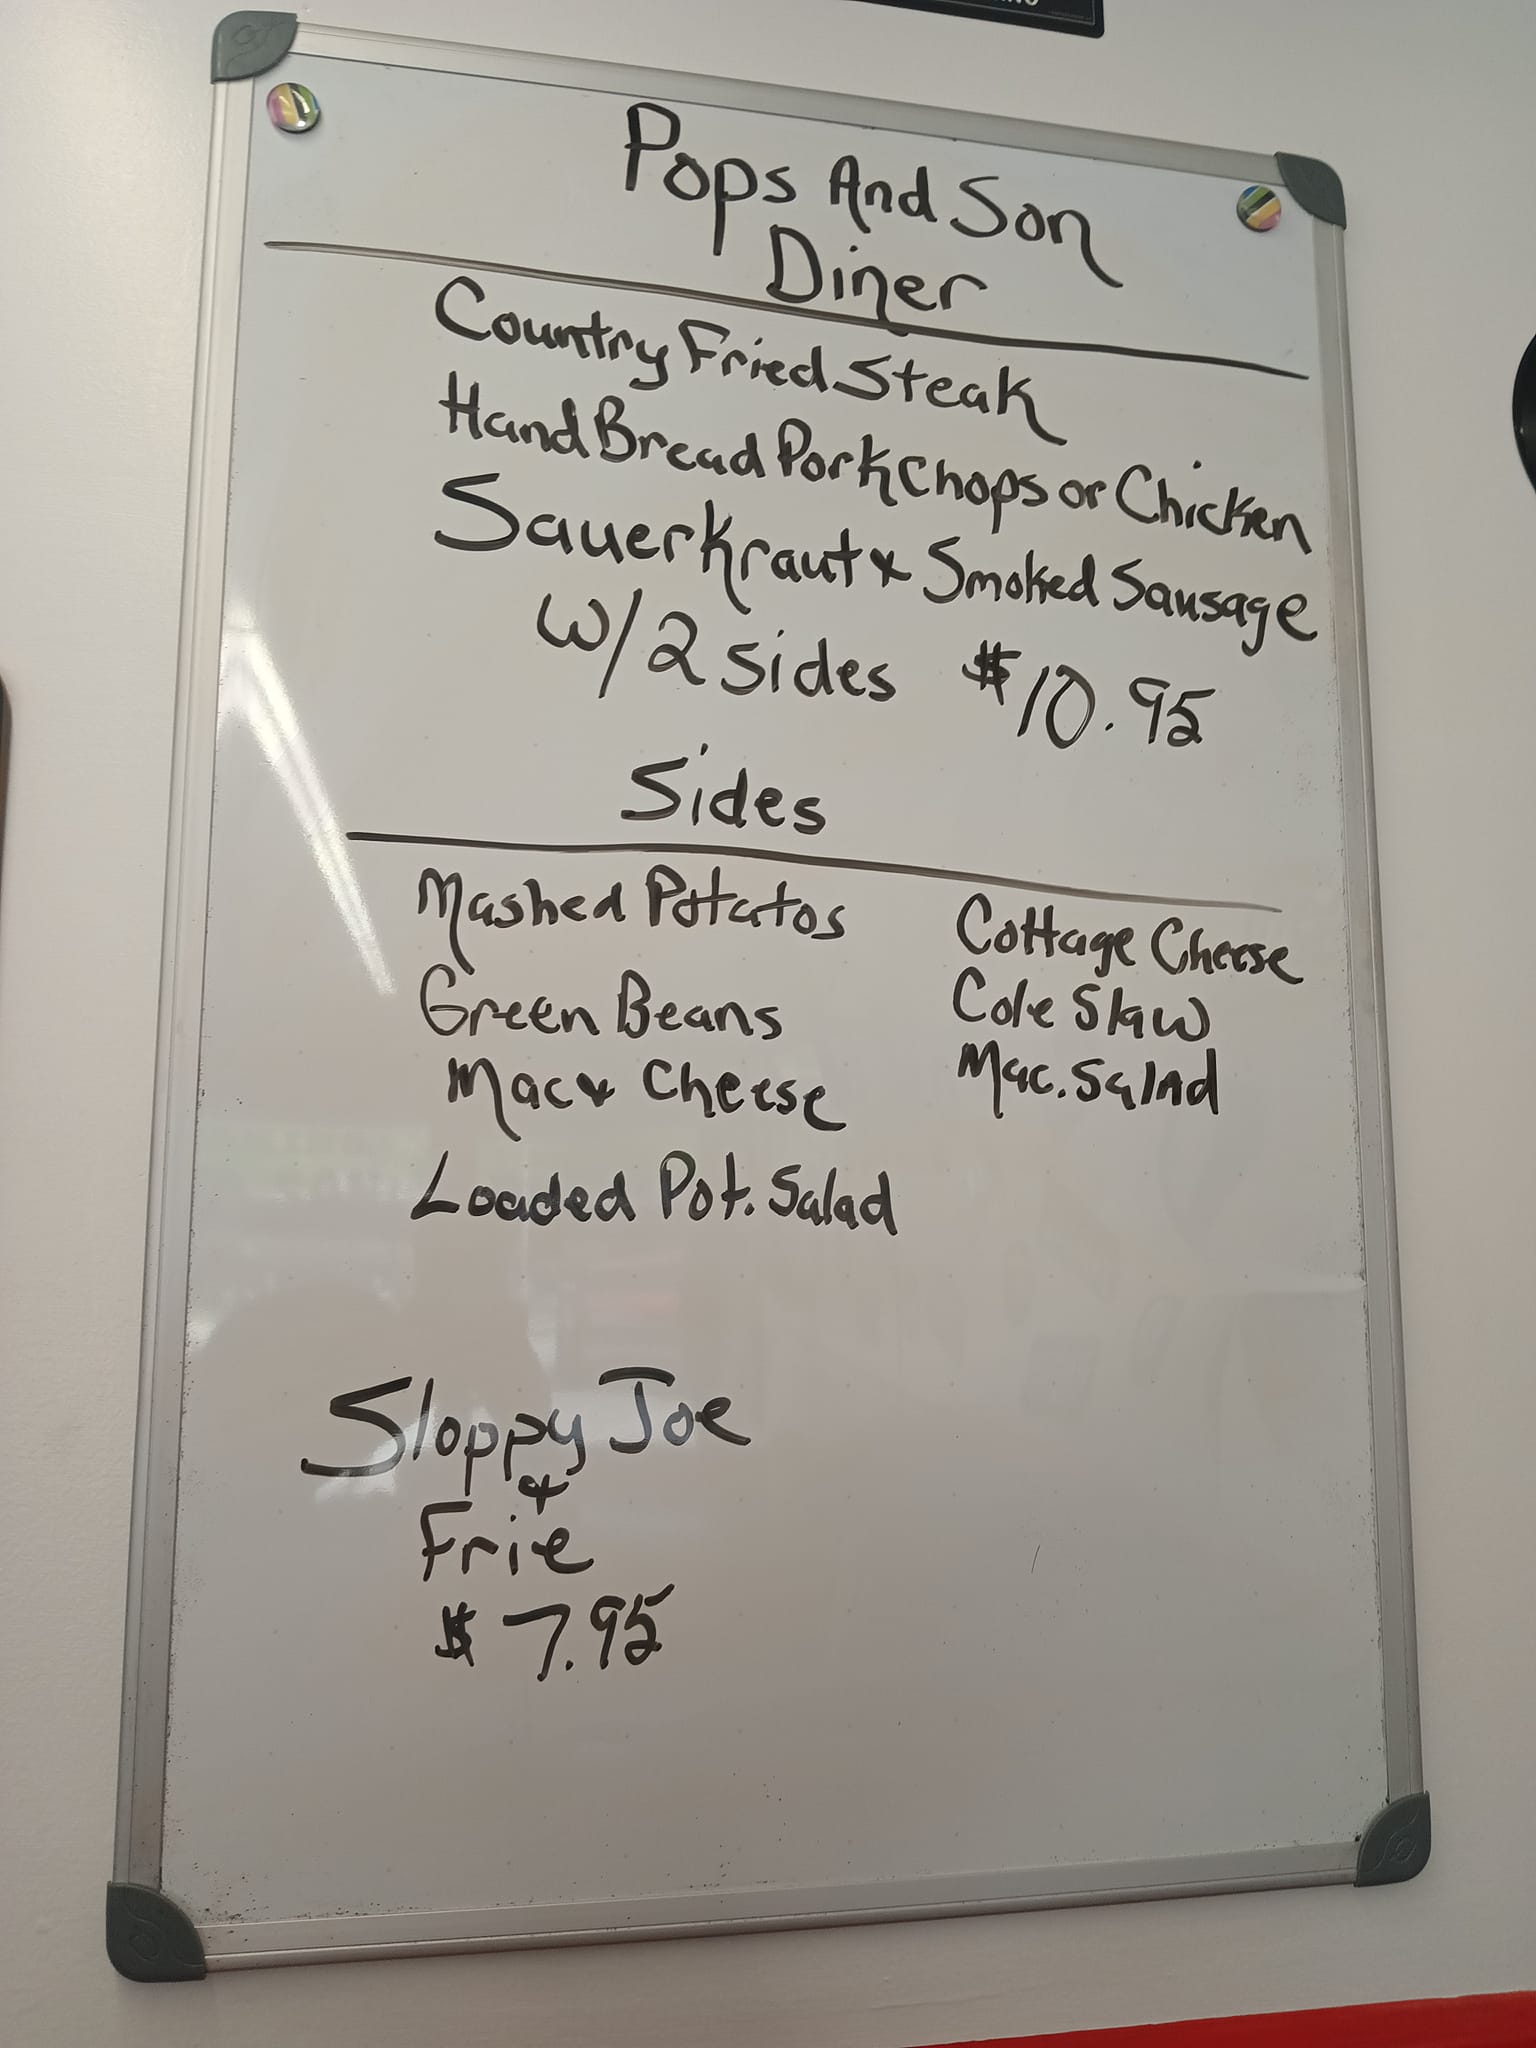 Pops And Son
Diner
Country Fried Steak
Hand Bread Pork Chops or Chicken
Sauerkraut & Smoked Sausage
W/2 sides $10.95
Sides
Mashed Potatos
Green Beans
Mac & Cheese
Loaded Pot. Salad
Cottage Cheese
Cole Slaw
Mac. Salad
Sloppy Joe
&
Frie
$7.95